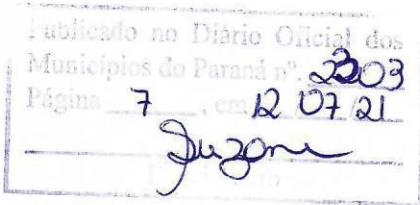 Publicado no Diário Oficial dos
Municípios do Paraná nº. 2303
Página 7, em 12 07 21
Suzane